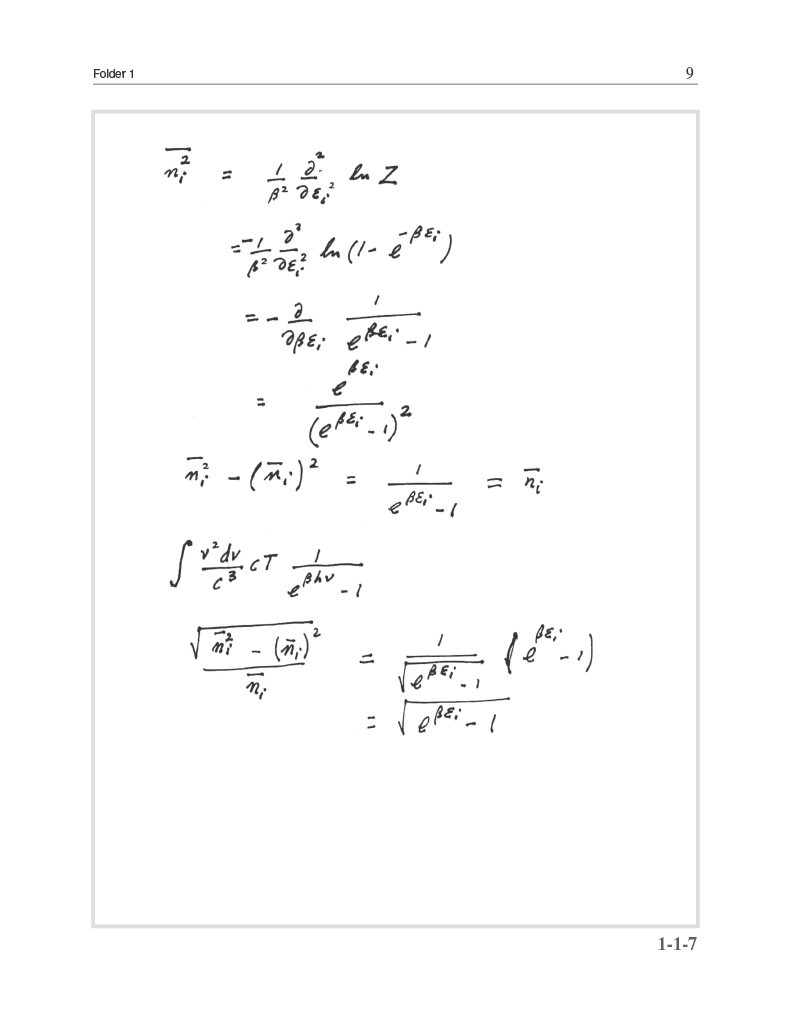 Folder 1 9
$\overline{n_i^2} = \frac{1}{\beta^2} \frac{\partial^2}{\partial \varepsilon_i^2} \ln Z$
$= -\frac{1}{\beta^2} \frac{\partial^2}{\partial \varepsilon_i^2} \ln (1 - e^{-\beta \varepsilon_i})$
$= - \frac{\partial}{\partial \beta \varepsilon_i} \frac{1}{e^{\beta \varepsilon_i} - 1}$
$= \frac{e^{\beta \varepsilon_i}}{(e^{\beta \varepsilon_i} - 1)^2}$
$\overline{n}_i^2 - (\overline{n}_i)^2 = \frac{1}{e^{\beta \varepsilon_i} - 1} = \overline{n}_i$
$\int \frac{\nu^2 d\nu}{c^3} cT \frac{1}{e^{\beta h \nu} - 1}$
$\frac{\sqrt{\overline{n}_i^2 - (\overline{n}_i)^2}}{\overline{n}_i} = \frac{1}{\sqrt{e^{\beta \varepsilon_i} - 1}} (e^{\beta \varepsilon_i} - 1)$
$= \sqrt{e^{\beta \varepsilon_i} - 1}$
1-1-7